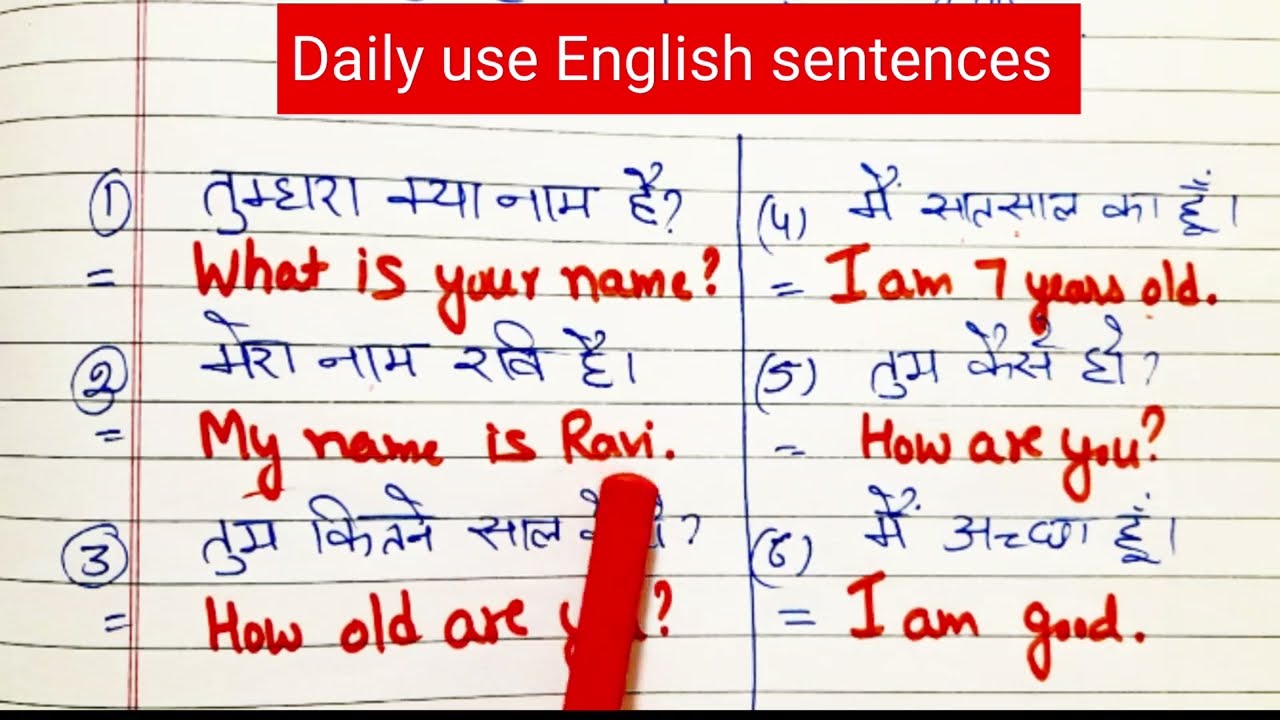 Daily use English sentences
① तुम्हारा क्या नाम है?
= What is your name?
② मेरा नाम रवि है।
= My name is Ravi.
③ तुम कितने साल ?
= How old are ?
(4) मैं सात साल का हूँ।
= I am 7 years old.
(5) तुम कैसे हो?
= How are you?
(6) मैं अच्छा हूं।
= I am good.